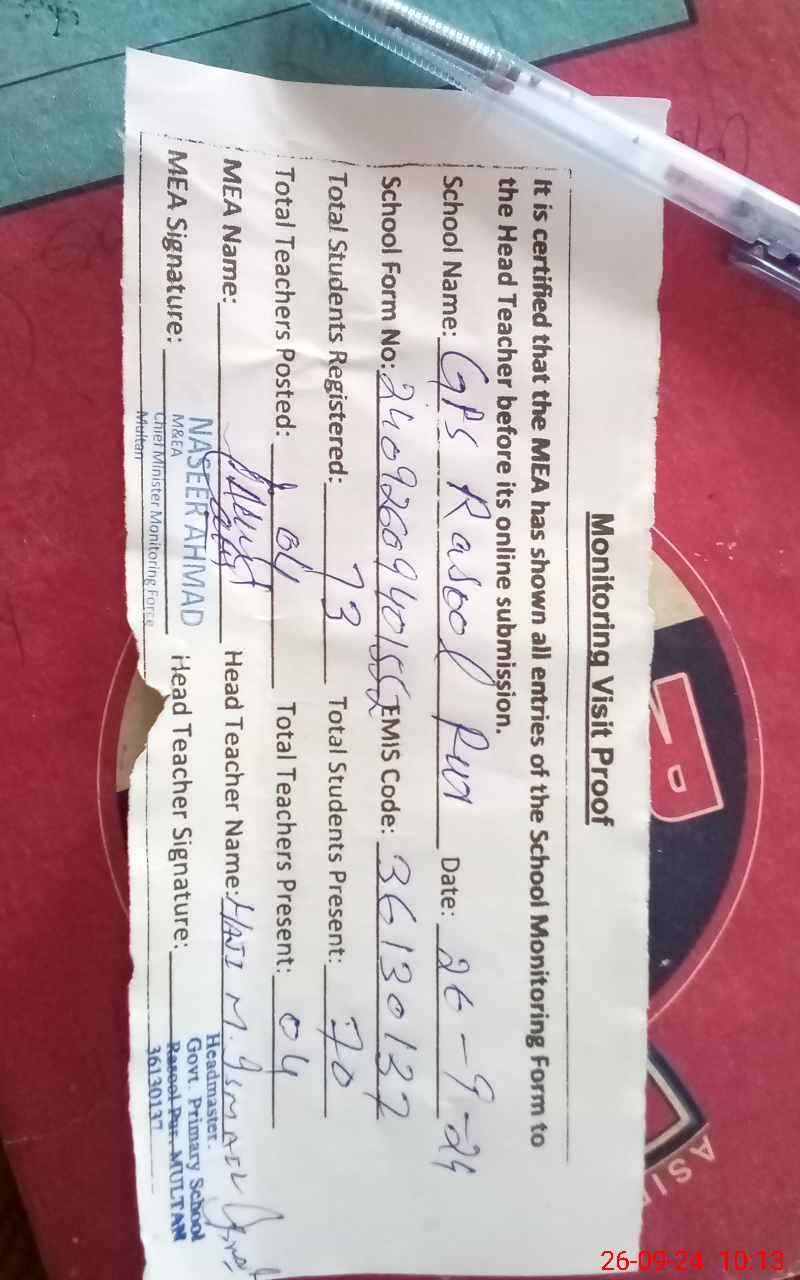 Monitoring Visit Proof
It is certified that the MEA has shown all entries of the School Monitoring Form to
the Head Teacher before its online submission.
School Name: GPS Rasool Pur Date: 26-9-24
School Form No: 24092609401552 EMIS Code: 36130137
Total Students Registered: 73 Total Students Present: 70
Total Teachers Posted: 04 Total Teachers Present: 04
MEA Name: Head Teacher Name: HAJI M. ISMAIL
MEA Signature: NASEER AHMAD Head Teacher Signature:
M&EA
Chief Minister Monitoring Force
Multan
Headmaster.
Govt. Primary School
Rasool Pur. MULTAN
36130137
26-09-24 10:13